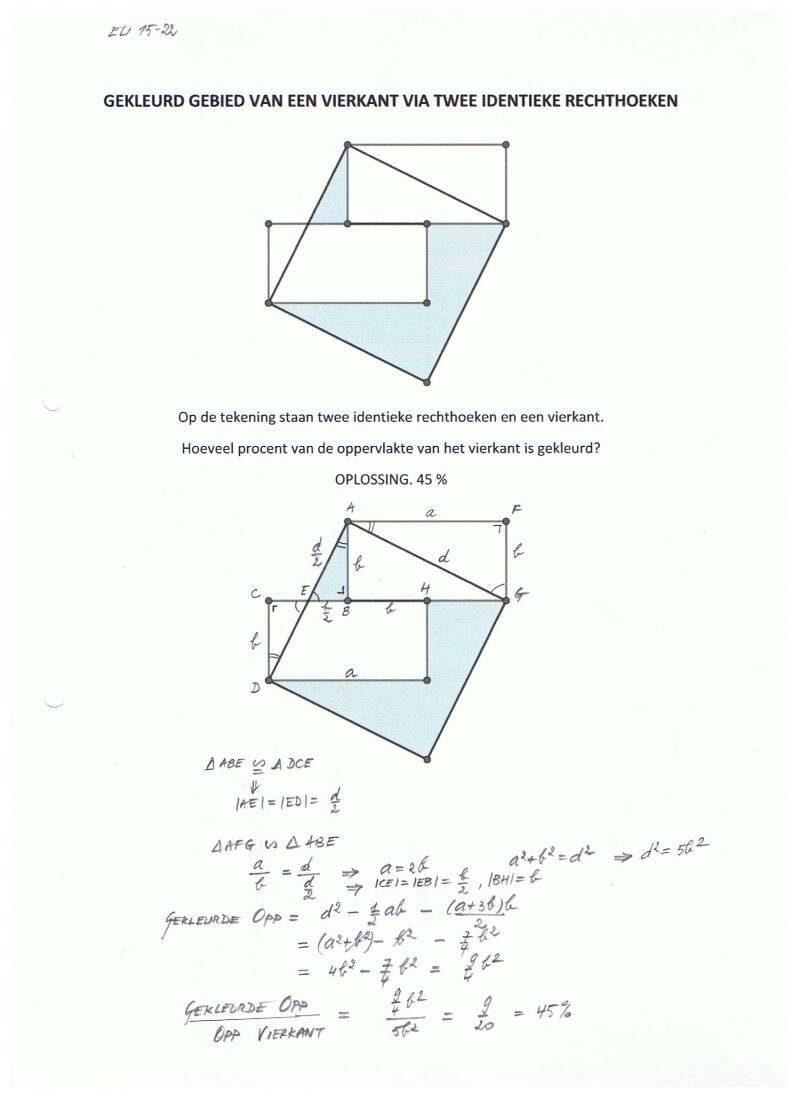 EU 15-22
GEKLEURD GEBIED VAN EEN VIERKANT VIA TWEE IDENTIEKE RECHTHOEKEN
Op de tekening staan twee identieke rechthoeken en een vierkant.
Hoeveel procent van de oppervlakte van het vierkant is gekleurd?
OPLOSSING. 45 %
A a F
d/2 b d b
C E B b H G
b/2
b
D a
Δ ABE ≅ Δ DCE
⇓
|AE| = |ED| = d/2
Δ AFG ∽ Δ ABE
a/b = d/(d/2) ⇒ a = 2b a² + b² = d² ⇒ d² = 5b²
⇒ |CE| = |EB| = b/2 , |BH| = b
GEKLEURDE OPP = d² - 1/2 ab - (a + 3/2 b)b/2
= (a² + b²) - b² - 7/4 b²
= 4b² - 7/4 b² = 9/4 b²
GEKLEURDE OPP / OPP VIERKANT = 9/4 b² / 5b² = 9/20 = 45%